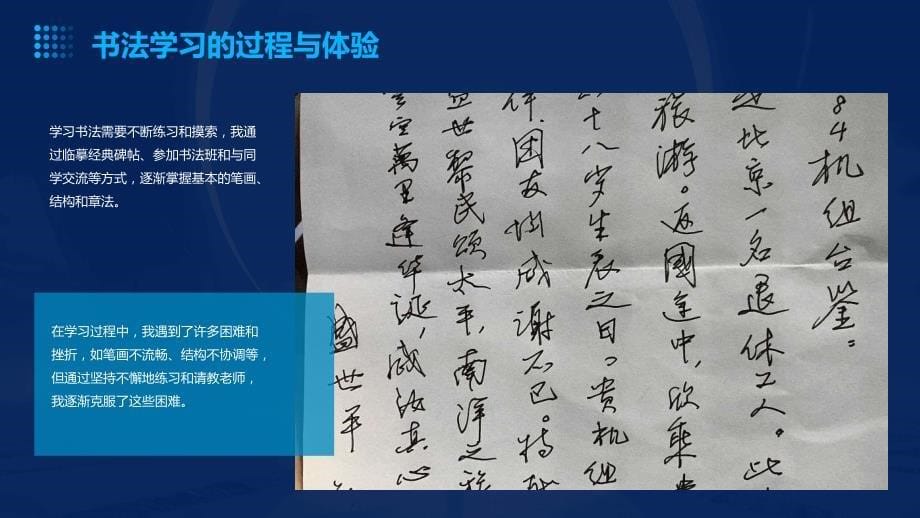 书法学习的过程与体验
学习书法需要不断练习和摸索，我通
过临摹经典碑帖、参加书法班和与同
学交流等方式，逐渐掌握基本的笔画、
结构和章法。
在学习过程中，我遇到了许多困难和
挫折，如笔画不流畅、结构不协调等，
但通过坚持不懈地练习和请教老师，
我逐渐克服了这些困难。
84机组台鉴：
北京一名退休工人。此
旅游。返國途中，欣乘
十八岁生辰之日。贵机组
团友 成谢不已。特
世黎民颂太平，南洋之
空萬里逢华诞，感汝真心
盛世平